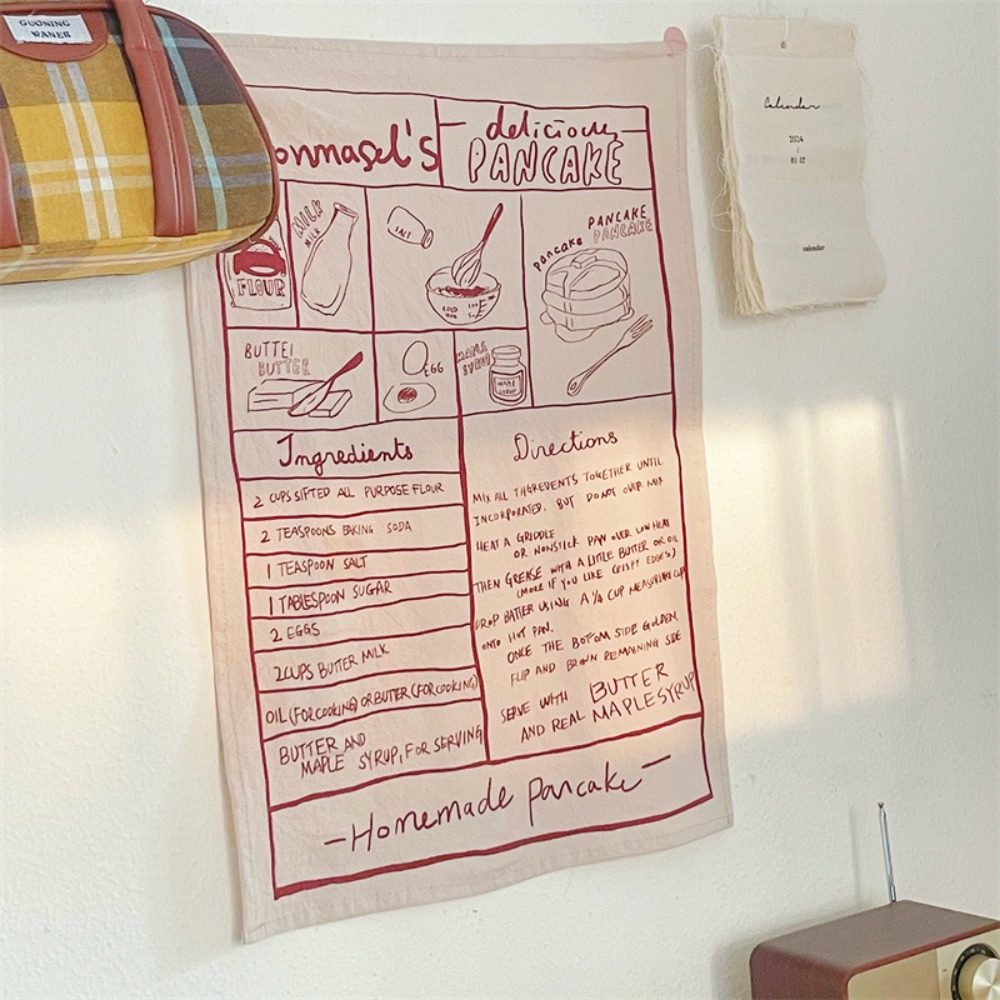 GUONING
WANER
onmasel's
delicious
PANCAKE
MILK
MILK
FLOUR
SALT
PANCAKE
PANCAKE
pancake
BUTTEI
BUTTER
EGG
MAPLE
SYRUP
MAPLE
SYRUP
Ingredients
2 CUPS SIFTED ALL PURPOSE FLOUR
2 TEASPOONS BAKING SODA
1 TEASPOON SALT
1 TABLESPOON SUGAR
2 EGGS
2 CUPS BUTTER MILK
OIL (FOR COOKING) OR BUTTER (FOR COOKING)
BUTTER AND
MAPLE SYRUP, FOR SERVING
Directions
MIX ALL THGREDENTS TOGETHER UNTIL
INCORPORATED. BUT DO NOT OVER MIX
HEAT A GRIDDLE
OR NONSTICK PAN OVER LOW HEAT
THEN GREASE WITH A LITTLE BUTTER OR OIL
(MORE IF YOU LIKE CRISPY EDGES)
DROP BATTER USING A 1/4 CUP MEASURING CUP
ONTO HOT PAN.
ONCE THE BOTTOM SIDE GOLDEN,
FLIP AND BROWN REMAINING SIDE
SERVE WITH BUTTER
AND REAL MAPLE SYRUP
-Homemade pancake-
Calendar
2024
/
01-12
calendar